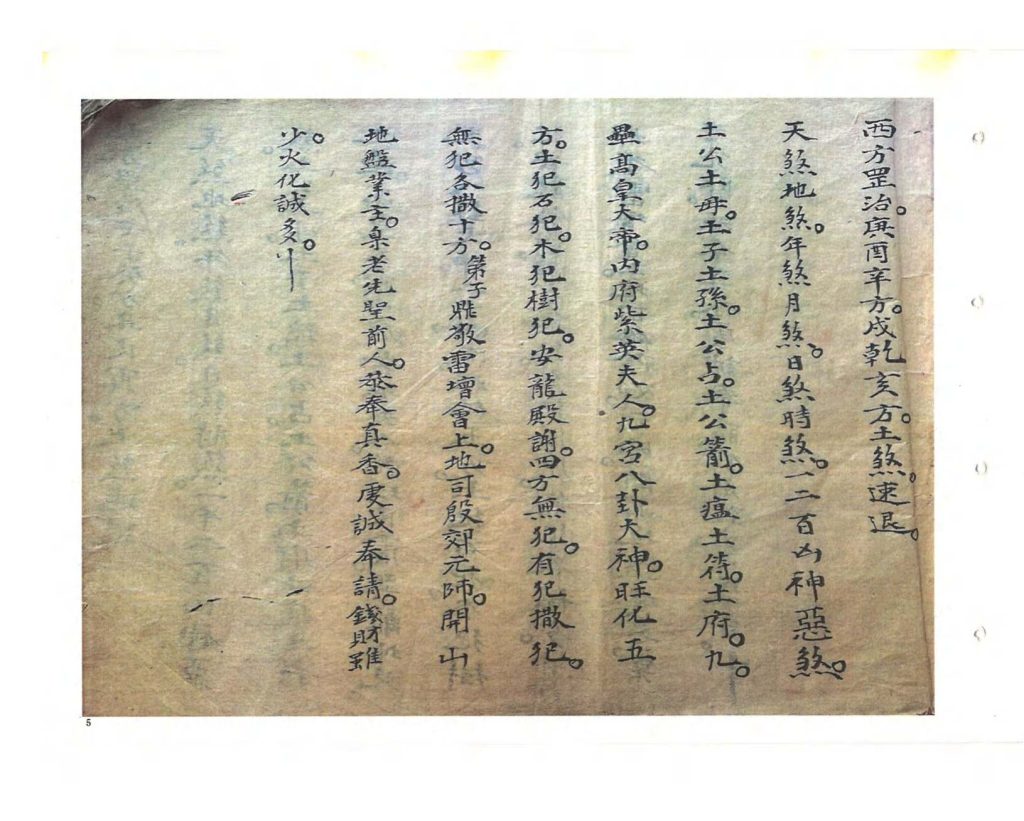 西方罡治。庚酉辛方。戌乾亥方。土煞。速退。
天煞地煞。年煞月煞。日煞時煞。一二百凶神惡煞。
土公土毋。土子土孫。土公占。土公箭。土瘟土符。土府。九
壘高皇大帝。内府紫英夫人。九宮八卦大神。旺化五
方。土犯石犯。木犯樹犯。安龍殿謝。四方無犯。有犯撒犯。
無犯各撒十方。第子敬雷壇會上。地司殷郊元帅。開山
地盤業主。泉老先聖前人。恭奉真香。虔誠奉請。錢財雖
少。火化誠多。
5